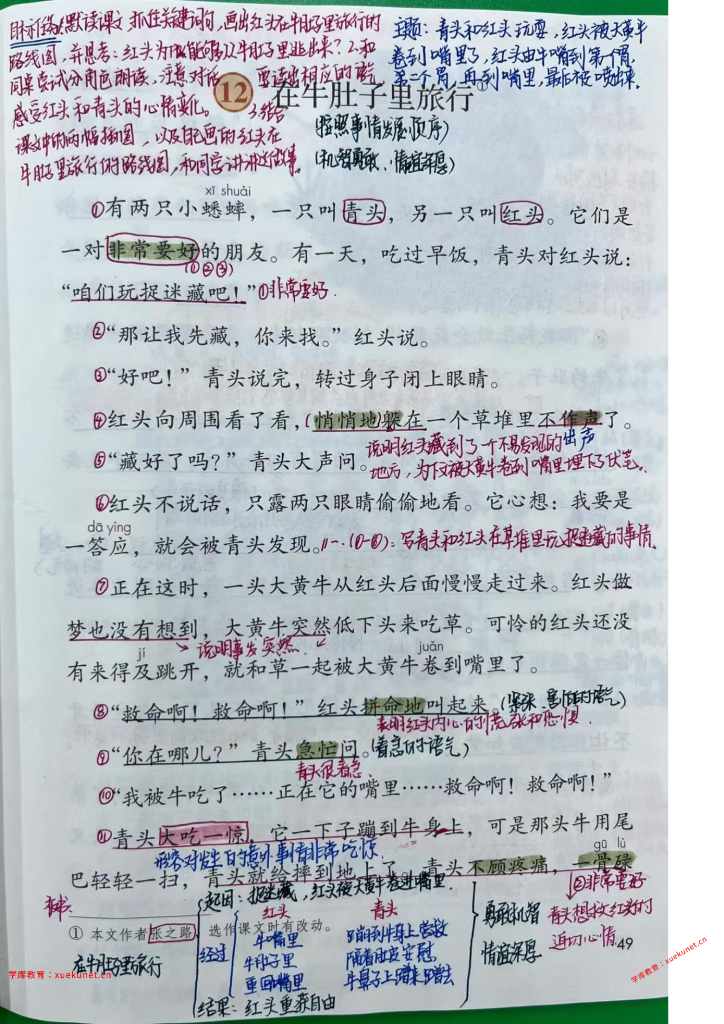 目标任务:1.默读课文,抓住关键词句,画出红头在牛肚子里旅行的
路线图,并思考:红头为何能够从牛肚子里逃出来?2.和
同桌尝试分角色朗读,注意对话 要读出相应的语气
感受红头和青头的心情变化。 3.结合
课文中的两幅插图,以及自己画的红头在
牛肚子里旅行的路线图,和同学讲讲这个故事。
主题:青头和红头玩耍,红头被大黄牛
卷到嘴里了,红头由牛嘴到第一个胃,
第二个胃,再到嘴里,最后被喷出来。
12 在牛肚子里旅行①
(按照事情发展顺序)
(机智勇敢、情谊深厚)
xī shuài
①有两只小蟋蟀,一只叫青头,另一只叫红头。它们是
一对非常要好的朋友。有一天,吃过早饭,青头对红头说:
①②③
“咱们玩捉迷藏吧!”①非常要好
②“那让我先藏,你来找。”红头说。
③“好吧!”青头说完,转过身子闭上眼睛。
④红头向周围看了看,(悄悄地)躲在一个草堆里不作声了。
出声
⑤“藏好了吗?”青头大声问。
说明红头藏到了一个不易发现的
地方,为下文被大黄牛卷到嘴里埋下了伏笔。
⑥红头不说话,只露两只眼睛偷偷地看。它心想:我要是
dā yìng
一答应,就会被青头发现。
(①-⑥):写青头和红头在草堆里玩捉迷藏的事情。
⑦正在这时,一头大黄牛从红头后面慢慢走过来。红头做
梦也没有想到,大黄牛突然低下头来吃草。可怜的红头还没
说明事发突然。
jí juǎn
有来得及跳开,就和草一起被大黄牛卷到嘴里了。
⑧“救命啊!救命啊!”红头拼命地叫起来。(紧张、害怕的语气)
表明红头内心的慌张和恐惧.
⑨“你在哪儿?”青头急忙问。(着急的语气)
青头很着急
⑩“我被牛吃了……正在它的嘴里……救命啊!救命啊!”
⑪青头大吃一惊,它一下子蹦到牛身上,可是那头牛用尾
形容对发生的意外事情非常吃惊. gū lù
巴轻轻一扫,青头就给摔到地上了。青头不顾疼痛,一骨碌
②非常要好
青头想救红头的
迫切心情
① 本文作者张之路,选作课文时有改动。
在牛肚子里旅行
起因:捉迷藏,红头被大黄牛卷进嘴里.
经过
红头 青头
牛嘴里 蹦到牛身上营救
牛肚子里 隔着肚皮安慰
重回嘴里 牛鼻子上蹭来蹭去
结果:红头重获自由
勇敢机智
情谊深厚
49
学库教育:xuekunet.cn
学库教育:xuekunet.cn